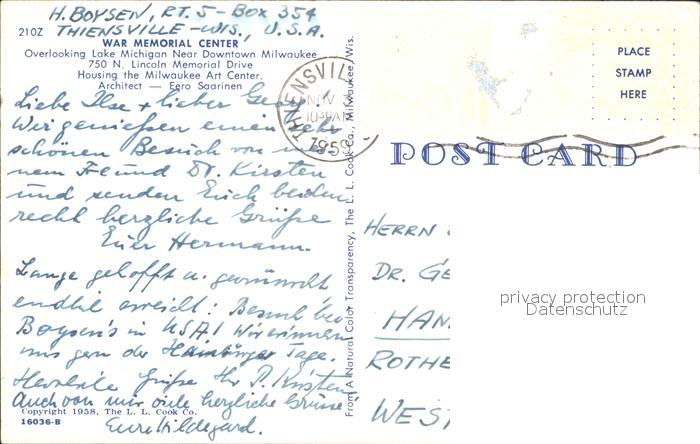 H. BOYSEN, RT. 5 - BOX 354
THIENSVILLE - WIS., U.S.A.
210Z
WAR MEMORIAL CENTER
Overlooking Lake Michigan Near Downtown Milwaukee
750 N. Lincoln Memorial Drive
Housing the Milwaukee Art Center.
Architect — Eero Saarinen
Liebe Ilse + lieber
Wir genießen einen sehr
schönen Besuch von
nem Freund Dr. Kirsten
und senden Euch beiden
recht herzliche Grüße
Euer Hermann.
Lange gehofft u. gewünscht
endlich erreicht: Besuch bei
Boysen's in USA! Wir erinnern
uns gern der Hamburger Tage.
Herzliche Grüße Ihr P. Kirsten
Auch von mir viele herzliche Grüsse
Eure Hildegard.
Copyright 1958, The L. L. Cook Co.
16036-B
From A Natural Color Transparency, The L. L. Cook Co., Milwaukee, Wis.
THIENSVIL
NOV
10 AM
1959
PLACE
STAMP
HERE
POST CARD
HERRN
DR. GE
HAN
ROTHE
WEST
privacy protection
Datenschutz